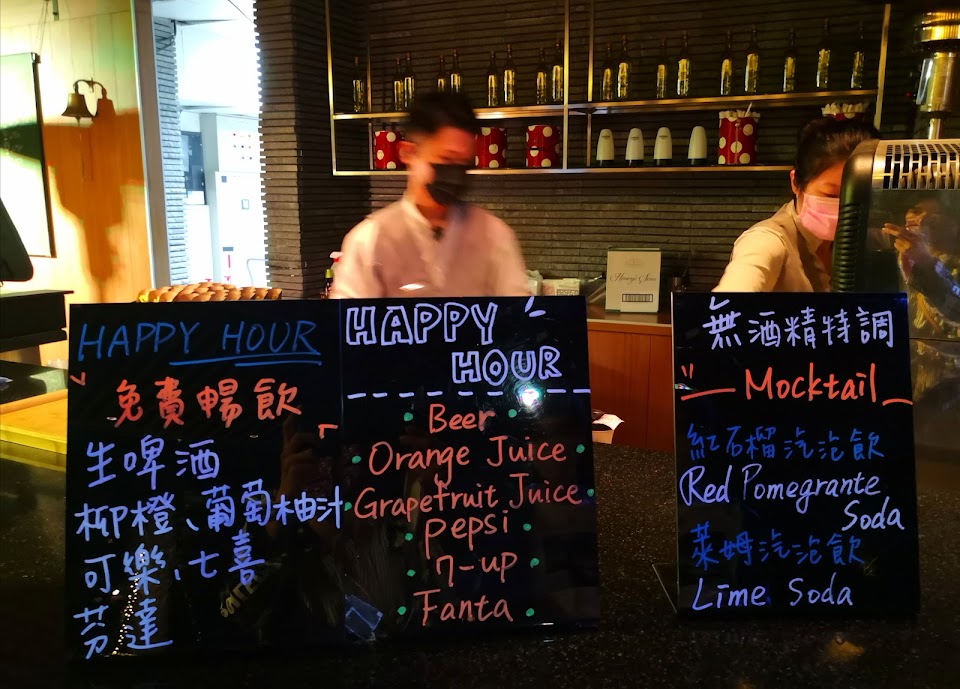 HAPPY HOUR
免費暢飲
生啤酒
柳橙、葡萄柚汁
可樂、七喜
芬達
HAPPY
HOUR
Beer
Orange Juice
Grapefruit Juice
pepsi
7-up
Fanta
無酒精特調
Mocktail
紅石榴汽泡飲
Red Pomegrante
Soda
萊姆汽泡飲
Lime Soda